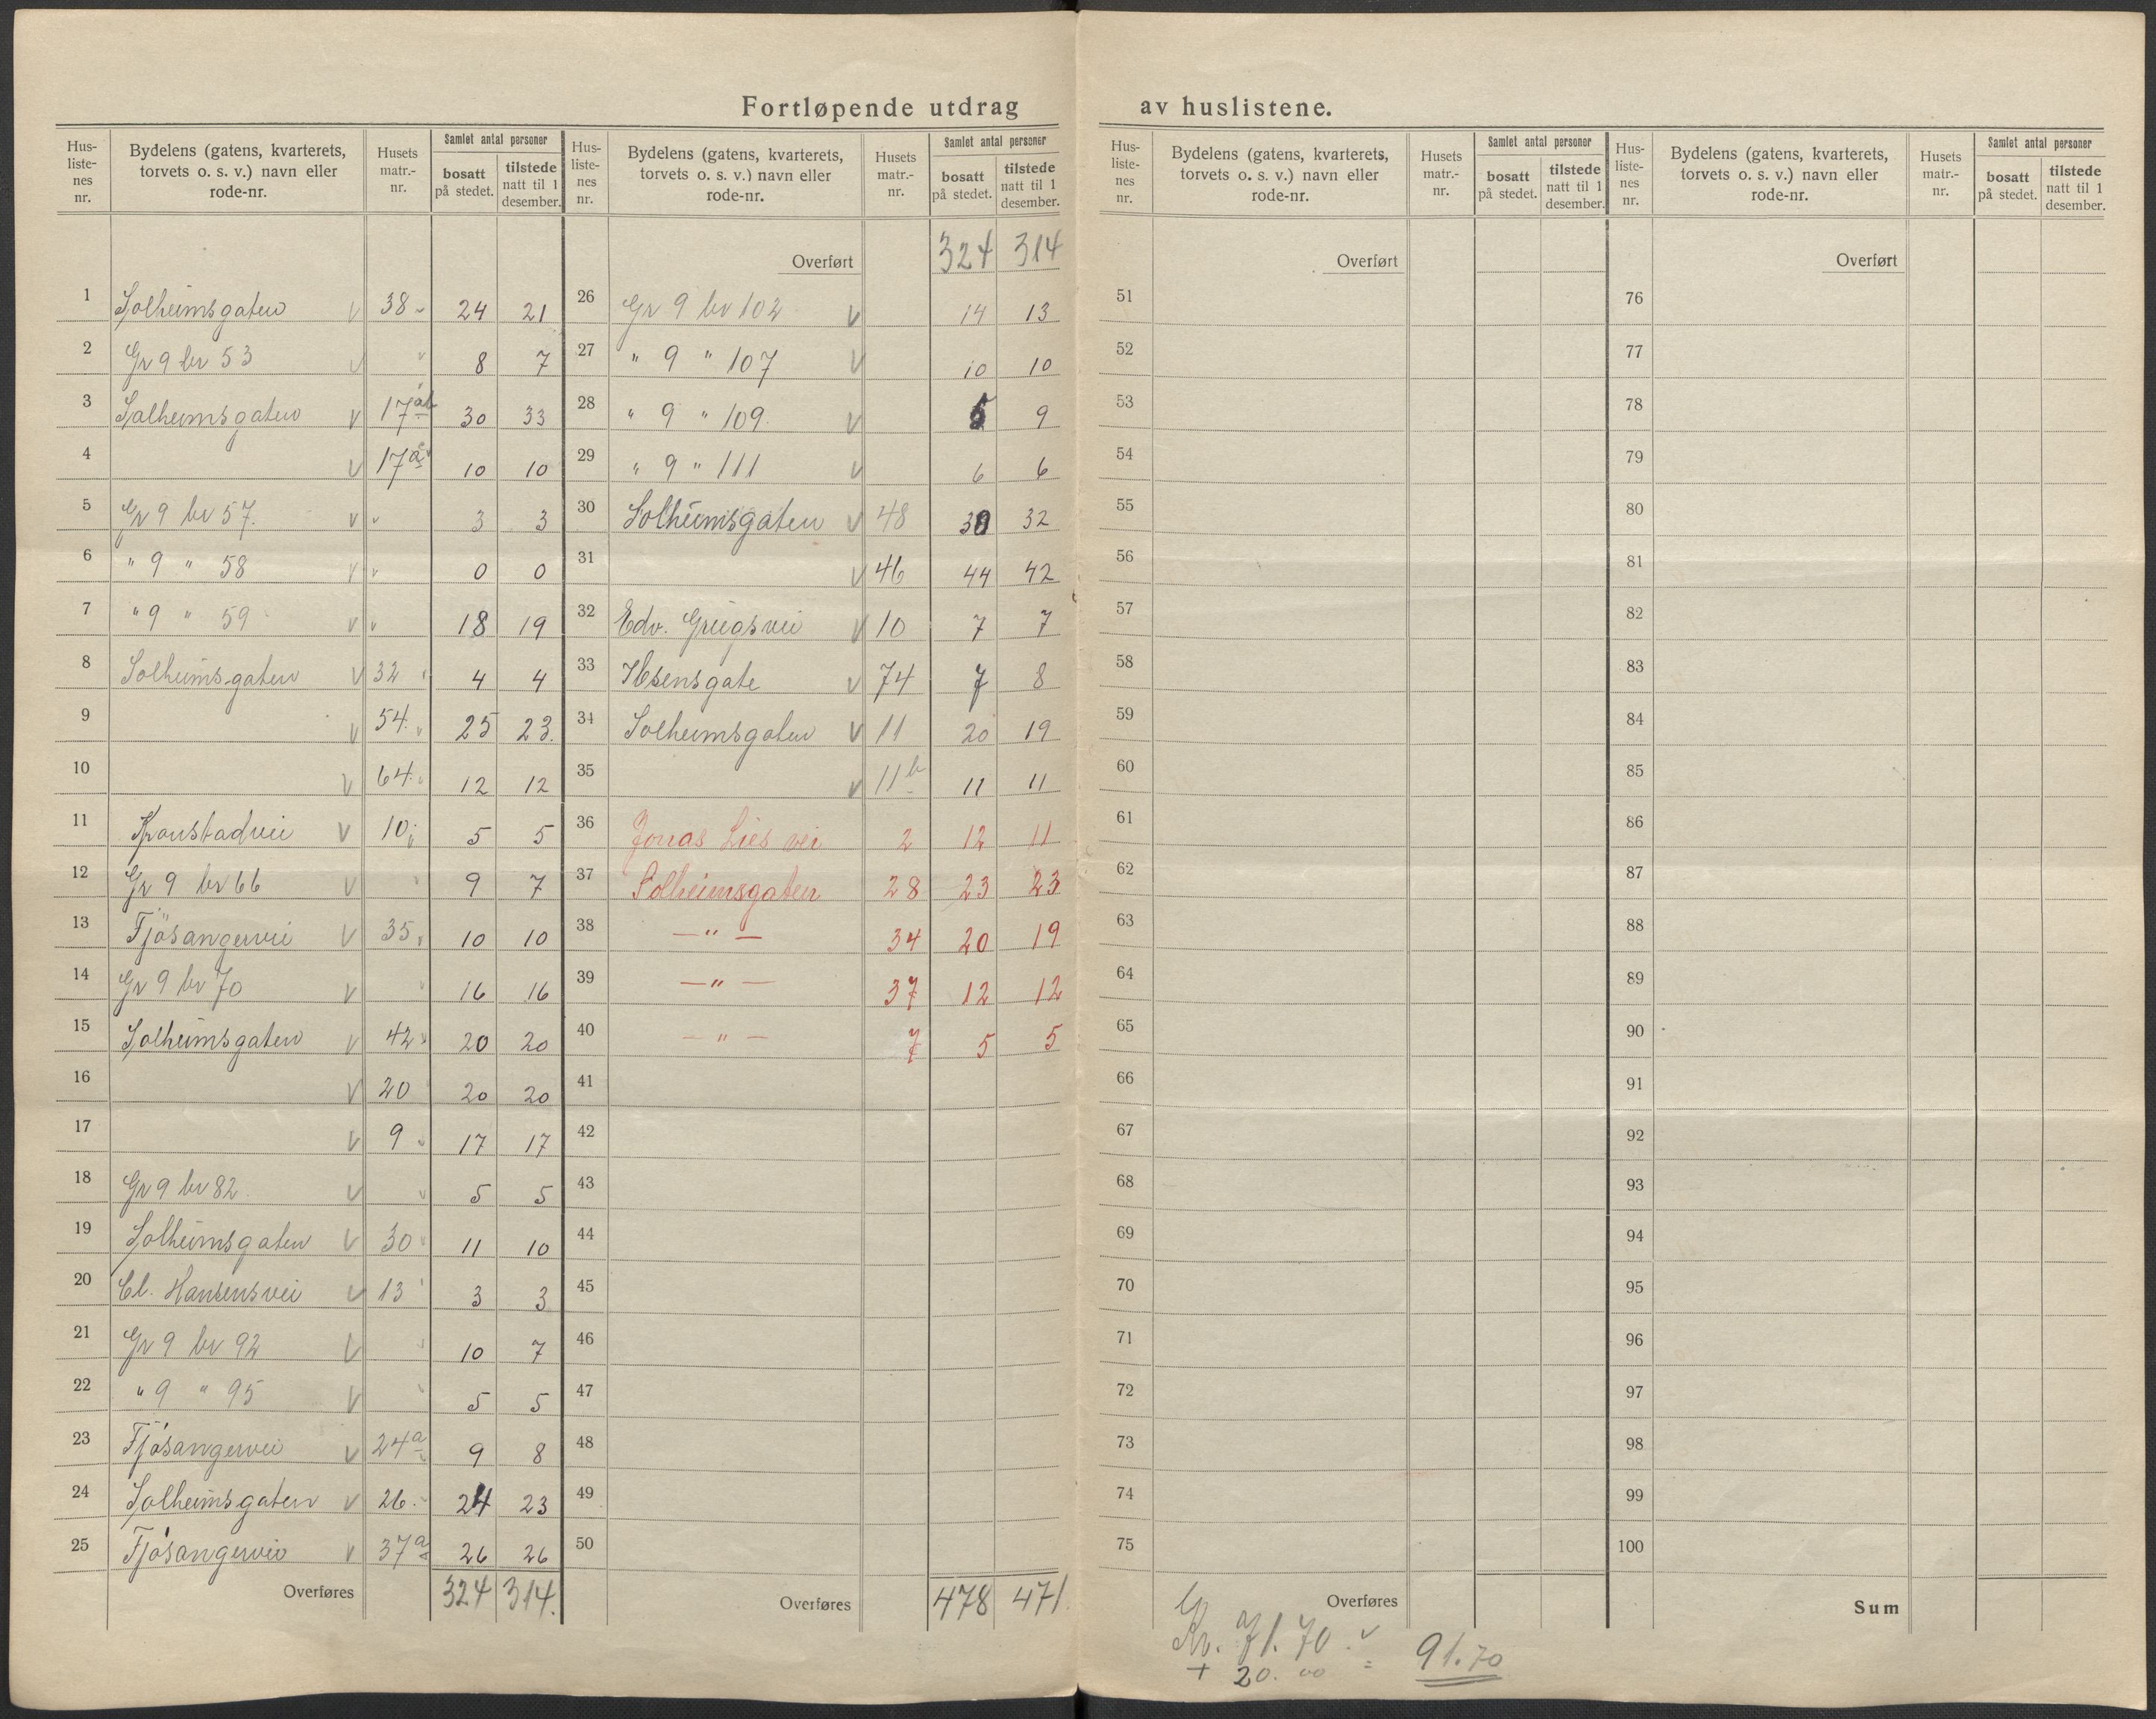 Fortløpende utdrag av huslistene.
Hus-liste-nes nr. | Bydelens (gatens, kvarterets, torvets o. s. v.) navn eller rode-nr. | Husets matr.-nr. | Samlet antal personer | bosatt på stedet. | tilstede natt til 1 desember.
1 Solheimsgaten v 38 24 21
2 Gr 9 br 53 v 8 7
3 Solheimsgaten v 17 ab 30 33
4 v 17 10 10
5 Gr 9 br 57. v 3 3
6 " 9 " 58 v 0 0
7 " 9 " 59 v 18 19
8 Solheimsgaten v 32 4 4
9 v 54. 25 23.
10 v 64. 12 12
11 Kronstadvei v 10 5 5
12 Gr 9 br 66 v 9 7
13 Fjösangervei v 35 10 10
14 Gr 9 br 70 v 16 16
15 Solheimsgaten v 42 20 20
16 v 20 20 20
17 v 9 17 17
18 Gr 9 br 82. v 5 5
19 Solheimsgaten v 30 11 10
20 Cl. Hansensvei v 13 3 3
21 Gr 9 br 92 v 10 7
22 " 9 " 95 v 5 5
23 Fjösangervei v 24a 9 8
24 Solheimsgaten v 26. 24 23
25 Fjösangervei v 37a 26 26
Overføres 324 314.
Hus-liste-nes nr. | Bydelens (gatens, kvarterets, torvets o. s. v.) navn eller rode-nr. | Husets matr.-nr. | Samlet antal personer | bosatt på stedet. | tilstede natt til 1 desember.
Overført 324 314
26 Gr 9 br 102 v 14 13
27 " 9 " 107 v 10 10
28 " 9 " 109. v 9
29 " 9 " 111 v 6 6
30 Solheimsgaten v 48 32
31 v 46 44 42
32 Edv. Griegsvei v 10 7 7
33 Ibsensgate v 74 7 8
34 Solheimsgaten v 11 20 19
35 v 11b 11 11
36 Jonas Lies vei 2 12 11
37 Solheimsgaten 28 23 23
38 — " — 34 20 19
39 — " — 37 12 12
40 — " — 7 5 5
41
42
43
44
45
46
47
48
49
50
Overføres 478 471.
Hus-liste-nes nr. | Bydelens (gatens, kvarterets, torvets o. s. v.) navn eller rode-nr. | Husets matr.-nr. | Samlet antal personer | bosatt på stedet. | tilstede natt til 1 desember.
Overført
51
52
53
54
55
56
57
58
59
60
61
62
63
64
65
66
67
68
69
70
71
72
73
74
75
Overføres
Hus-liste-nes nr. | Bydelens (gatens, kvarterets, torvets o. s. v.) navn eller rode-nr. | Husets matr.-nr. | Samlet antal personer | bosatt på stedet. | tilstede natt til 1 desember.
Overført
76
77
78
79
80
81
82
83
84
85
86
87
88
89
90
91
92
93
94
95
96
97
98
99
100
Sum
Kr. 71.70 v
+ 20.00 = 91.70